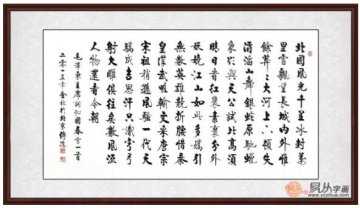 北國風光千里冰封萬
里雪飄望長城內外惟
餘莽莽大河上下頓失
滔滔山舞銀蛇原馳蠟
象欲與天公試比高須
晴日看紅裝素裹分外
妖嬈江山如此多嬌引
無數英雄競折腰惜秦
皇漢武略輸文采唐宗
宋祖稍遜風騷一代天
驕成吉思汗只識彎弓
射大雕俱往矣數風流
人物還看今朝
毛澤東主席詞沁園春雪一首
二零一五年金秋於北京
易从字画